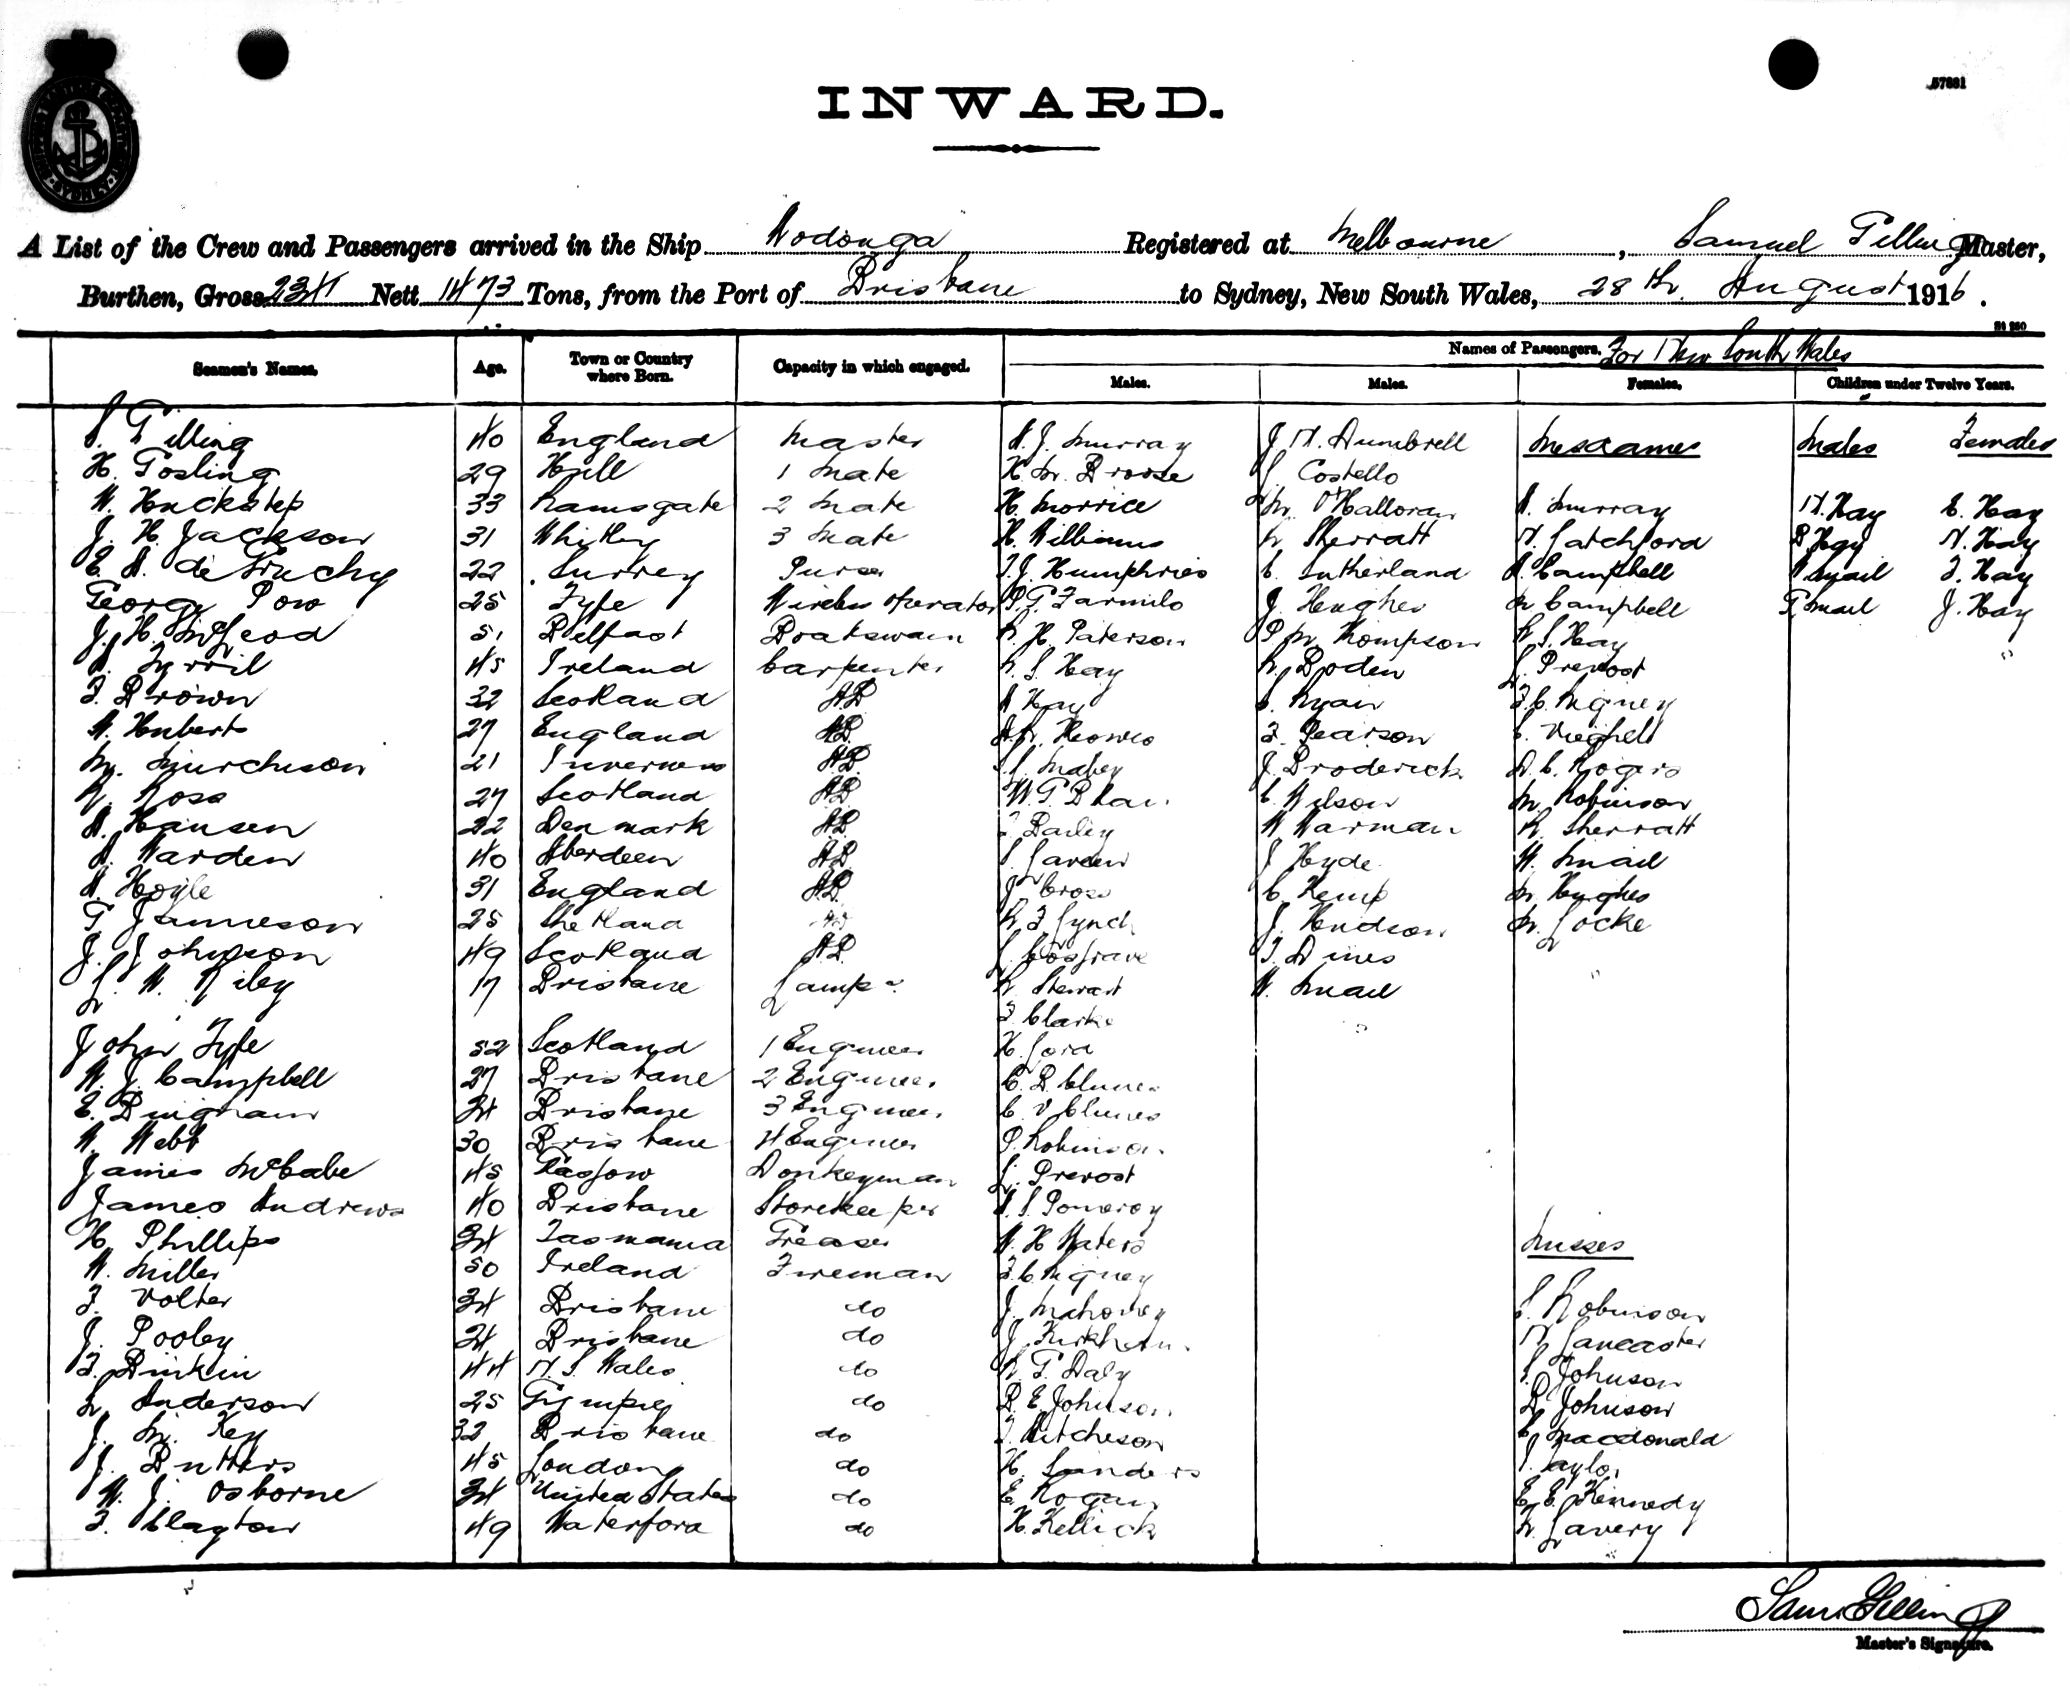 57881
INWARD.
A List of the Crew and Passengers arrived in the Ship Wodonga Registered at Melbourne, Samuel Gilling Master,
Burthen, Gross 2341 Nett 1473 Tons, from the Port of Brisbane to Sydney, New South Wales, 28th August 1916.
St 250
Seamen's Names. Age. Town or Country where Born. Capacity in which engaged. Names of Passengers. For New South Wales
Males. Males. Females. Children under Twelve Years.
S. Gilling 40 England Master A. J. Murray J. N. Dumbrell Mesdames Males Females
H. Gosling 29 Hull 1 Mate S. Costello
W. Huckstep 33 Ramsgate 2 Mate H. Morrice M. O'Halloran A. Murray N. Hay E. Hay
J. H. Jackson 31 Whitby 3 Mate H. Williams R. Sherratt N. Latchford B Hay N. Hay
E. A. de Gruchy 22 Surrey Purser F. J. Humphries C. Sutherland A. Campbell W Smail F. Hay
George Pow 25 Fyfe Wireless Operator P. G. Farmilo J. Hughes M Campbell G. Smail J. Hay
J. H. McLeod 51 Belfast Boatswain R. H. Paterson P M. Thompson R. S. Hay
45 Ireland Carpenter R. S. Hay R. Boden L. Prevost
F. Brown 32 Scotland AB A Hay S. Ryan F. C. Rigney
A. Hubert 27 England AB A. R. Howes F. Pearson
M. Murchison 21 Inverness AB S. S. Mabey J. Broderick A. C. Rogers
R. Ross 27 Scotland AB W. G. C. Wilson M. Robinson
A. Hansen 22 Denmark AB F. Bailey W Warman R. Sherratt
A. Warden 40 Aberdeen AB S. Larsen J Hyde W. Smail
A. Hoyle 31 England AB J Cross C. Kemp M. Hughes
G Jameson 25 Shetland AB R F Lynch J. Hudson M. Locke
J. Johnson 49 Scotland AB L. Cosgrave F. Dines
L. W. Riley 17 Brisbane Lamps R Stewart W. Smail
F. Clarke
John Fyfe 52 Scotland 1 Engineer H. Lord
W. J. Campbell 27 Brisbane 2 Engineer C. B. Clunes
E. Bingham 34 Brisbane 3 Engineer C. V Clunes
W. Webb 30 Brisbane 4 Engineer P. Robinson
James McCabe 45 Glasgow Donkeyman L. Prevost
James Andrews 40 Brisbane Storekeeper A. S. Pomeroy
H. Phillips 34 Tasmania Greaser W. H Waters Misses
W. Miller 50 Ireland Fireman F. C. Rigney
F. Volter 34 Brisbane do J. Mahoney S. Robinson
J. Pooley 34 Brisbane do J Kirkham N. Lancaster
F. Binkin 44 N. S. Wales do R. G. Daly S. Johnson
L. Anderson 25 Gympie do B. E. Johnson B Johnson
J. M. Key 33 Brisbane do F. Aitcheson C Macdonald
J. Butters 45 London do H. Sanders Taylor
W. J. Osborne 34 United States do E. Hogan E. E. Kennedy
F. Clayton 49 Waterford do H. Kellick R. Lavery
Saml Gilling
Master's Signature.